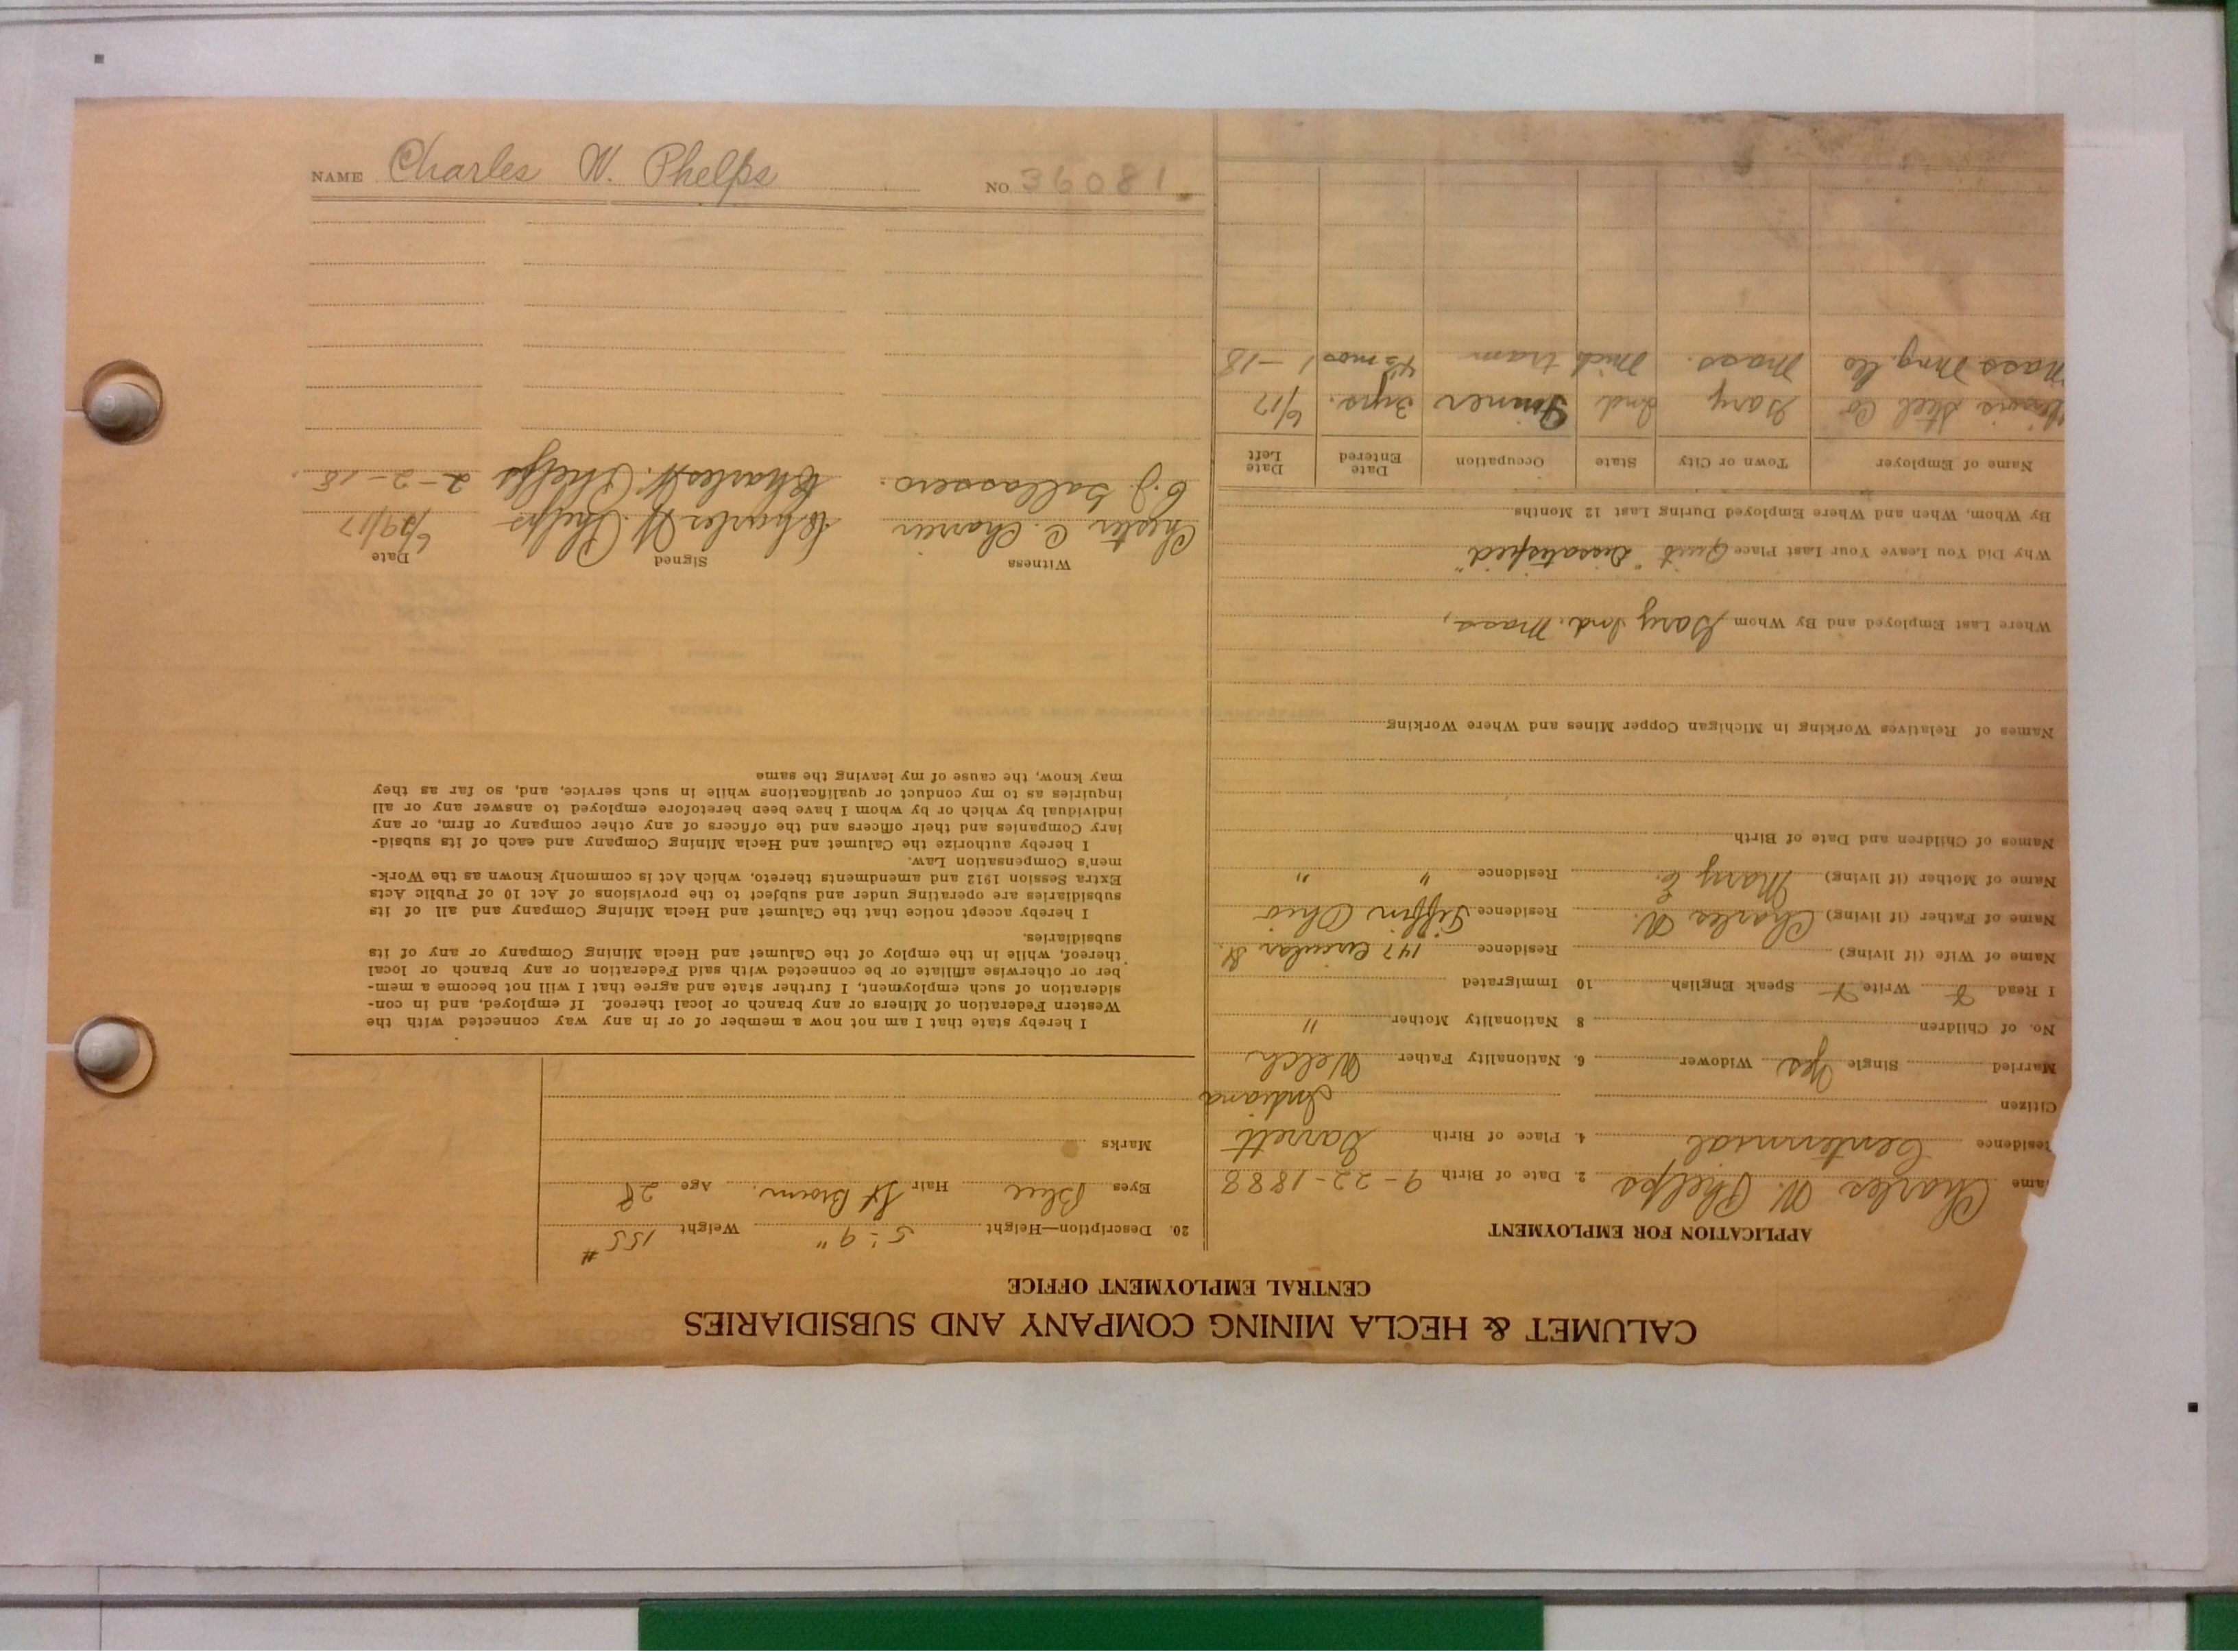 CALUMET & HECLA MINING COMPANY AND SUBSIDIARIES
CENTRAL EMPLOYMENT OFFICE
APPLICATION FOR EMPLOYMENT
ame Charles W. Phelps 2. Date of Birth 9-22-1888
Residence Centennial 4. Place of Birth Garrett
Citizen Indiana
Married Single Yes Widower 6. Nationality Father Welch
No. of Children 8 Nationality Mother "
I Read Write Speak English 10 Immigrated
Name of Wife (if living) Residence 147 Circular St.
Name of Father (if living) Charles W. Residence Tiffin Ohio
Name of Mother (if living) Mary E. Residence " "
Names of Children and Date of Birth
Names of Relatives Working in Michigan Copper Mines and Where Working
Where Last Employed and By Whom Gary Ind. Mass,
Why Did You Leave Your Last Place Quit "Dissatisfied"
By Whom, When and Where Employed During Last 12 Months
Name of Employer Town or City State Occupation Date Entered Date Left
Illinois Steel Co Gary Ind 3 yrs. 6/17
Mass Mng. Co Mass. Mich tram mos 1-18
20. Description—Height 5-9" Weight 155 #
Eyes Blue Hair Lt Brown. Age 28
Marks
I hereby state that I am not now a member of or in any way connected with the
Western Federation of Miners or any branch or local thereof. If employed, and in con-
sideration of such employment, I further state and agree that I will not become a mem-
ber or otherwise affiliate or be connected with said Federation or any branch or local
thereof, while in the employ of the Calumet and Hecla Mining Company or any of its
subsidiaries.
I hereby accept notice that the Calumet and Hecla Mining Company and all of its
subsidiaries are operating under and subject to the provisions of Act 10 of Public Acts
Extra Session 1912 and amendments thereto, which Act is commonly known as the Work-
men's Compensation Law.
I hereby authorize the Calumet and Hecla Mining Company and each of its subsid-
iary Companies and their officers and the officers of any other company or firm, or any
individual by which or by whom I have been heretofore employed to answer any or all
inquiries as to my conduct or qualifications while in such service, and, so far as they
may know, the cause of my leaving the same
Witness Signed Date
Chester C. Charles W. Phelps 6/29/17
Charles W. Phelps 2-2-18.
NAME Charles W. Phelps NO 36081